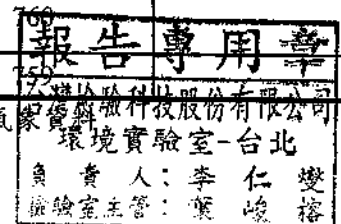 760
報告專用章
759
台灣檢驗科技股份有限公司
氣象資料
環境實驗室-台北
負責人：李仁燮
檢驗室主管：葉峻榕